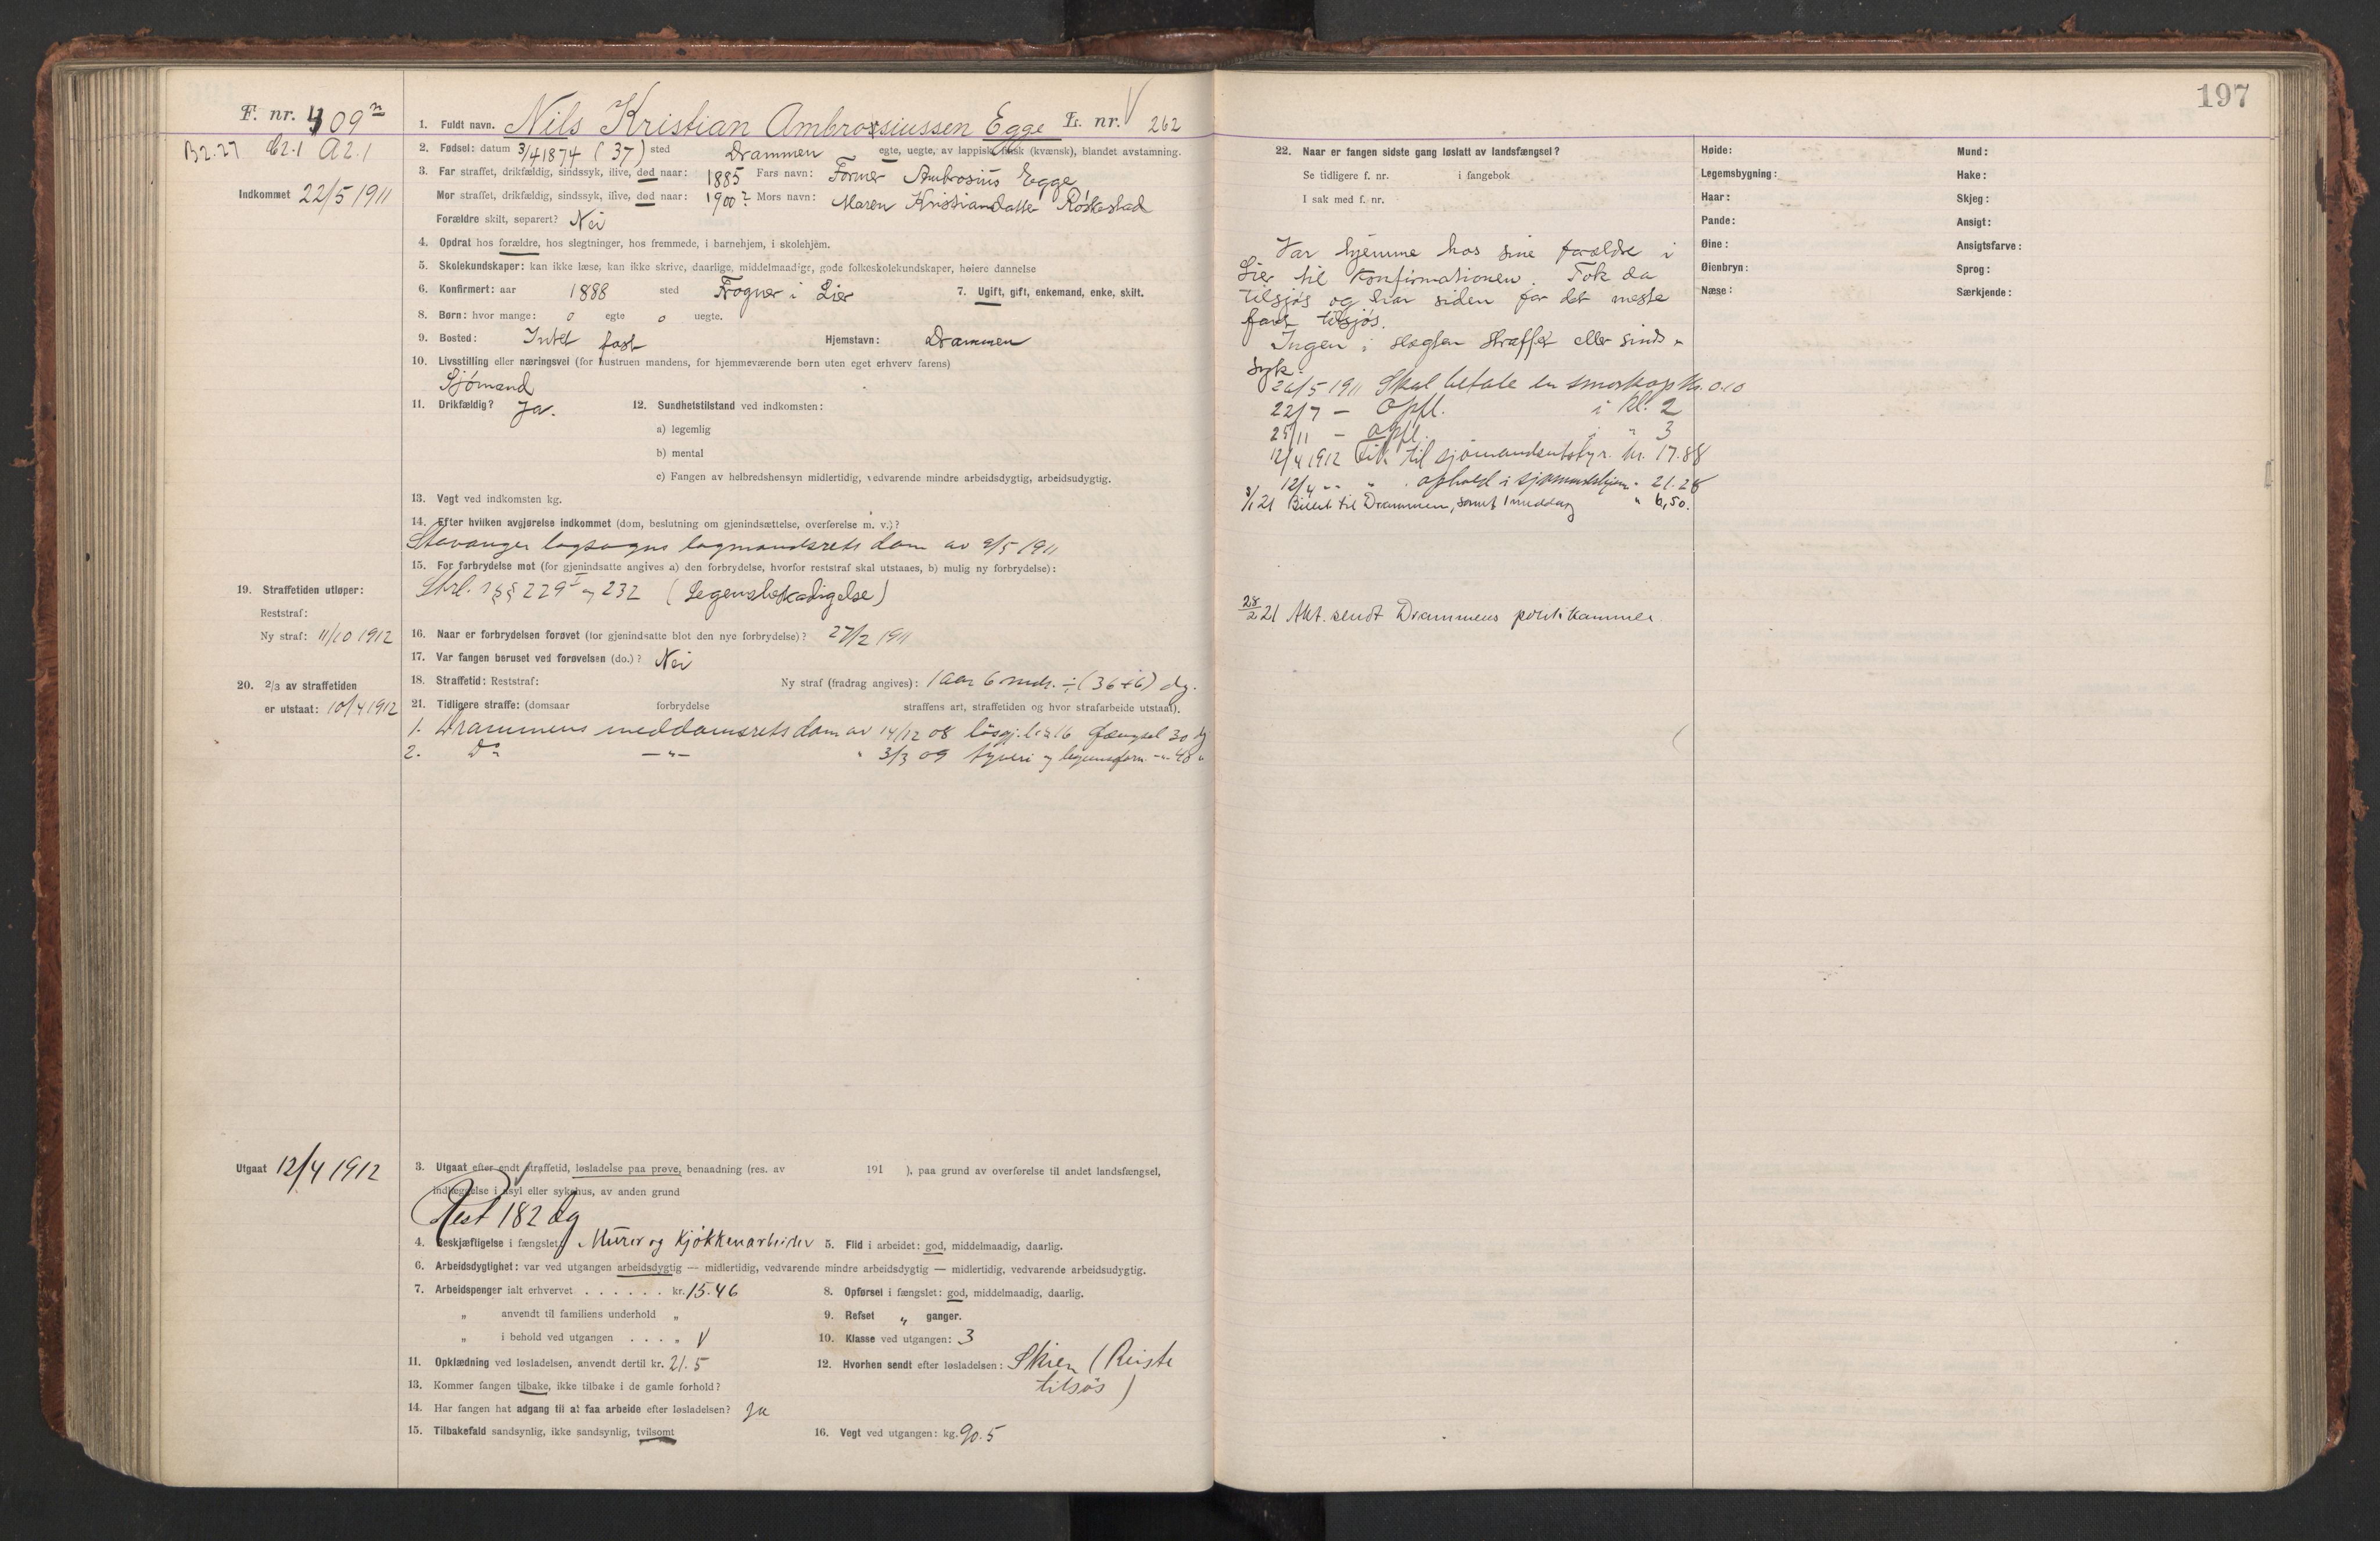 197
F. nr. 409
1. Fuldt navn. Nils Kristian Ambrosiussen Egge L. nr. 262
B2.27 C2.1 A2.1
2. Fødsel: datum 3/4 1874 (37) sted Drammen egte, uegte, av lappisk, finsk (kvænsk), blandet avstamning.
Indkommet 22/5 1911
3. Far straffet, drikfældig, sindssyk, ilive, død naar: 1885 Fars navn: Former Ambrosius Egge
Mor straffet, drikfældig, sindssyk, ilive, død naar: 1900? Mors navn: Maren Kristiansdatter
Forældre skilt, separert? Nei
4. Opdrat hos forældre, hos slegtninger, hos fremmede, i barnehjem, i skolehjem.
5. Skolekundskaper: kan ikke læse, kan ikke skrive, daarlige, middelmaadige, gode folkeskolekundskaper, høiere dannelse
6. Konfirmert: aar 1888 sted Frogner i Lier 7. Ugift, gift, enkemand, enke, skilt.
8. Børn: hvor mange: 0 egte 0 uegte.
9. Bosted: Intet fast Hjemstavn: Drammen
10. Livsstilling eller næringsvei (for hustruen mandens, for hjemmeværende børn uten eget erhverv farens)
Sjömand
11. Drikfældig? Ja. 12. Sundhetstilstand ved indkomsten:
a) legemlig
b) mental
c) Fangen av helbredshensyn midlertidig, vedvarende mindre arbeidsdygtig, arbeidsudygtig.
13. Vegt ved indkomsten kg.
14. Efter hvilken avgjørelse indkommet (dom, beslutning om gjenindsættelse, overførelse m. v.)?
Stavanger lagsogns lagmandsrets dom av 9/5 1911
15. For forbrydelse mot (for gjenindsatte angives a) den forbrydelse, hvorfor reststraf skal utstaaes, b) mulig ny forbrydelse):
Strl. §§ 229 I og 232 (Legemsbeskadigelse)
19. Straffetiden utløper:
Reststraf:
Ny straf: 11/10 1912
16. Naar er forbrydelsen forøvet (for gjenindsatte blot den nye forbrydelse)? 27/2 1911
17. Var fangen beruset ved forøvelsen (do.)? Nei
18. Straffetid: Reststraf: Ny straf (fradrag angives): 1 aar 6 mdr. ÷ (36+6) dg.
20. 2/3 av straffetiden
er utstaat: 10/4 1912
21. Tidligere straffe: (domsaar forbrydelse straffens art, straffetiden og hvor strafarbeide utstaat).
1. Drammens meddomsrets dom av 14/12 08 løsgj.l. § 16 fængsel 30 dg
2. Do —"— " 3/3 09 tyveri og legemsforn. -"- 48 "
Utgaat 12/4 1912
3. Utgaat efter endt straffetid, løsladelse paa prøve, benaadning (res. av 191 ), paa grund av overførelse til andet landsfængsel,
indlæggelse i asyl eller sykehus, av anden grund
Rest 182 dg
4. Beskjæftigelse i fængslet: Murer og Kjøkkenarbeider 5. Flid i arbeidet: god, middelmaadig, daarlig.
6. Arbeidsdygtighet: var ved utgangen arbeidsdygtig — midlertidig, vedvarende mindre arbeidsdygtig — midlertidig, vedvarende arbeidsudygtig.
7. Arbeidspenger ialt erhvervet . . . . . . kr. 15.46 8. Opførsel i fængslet: god, middelmaadig, daarlig.
" anvendt til familiens underhold " 9. Refset " ganger.
" i behold ved utgangen . . . " 10. Klasse ved utgangen: 3
11. Opklædning ved løsladelsen, anvendt dertil kr. 21.5 12. Hvorhen sendt efter løsladelsen: Skien (Reiste
tilsøs)
13. Kommer fangen tilbake, ikke tilbake i de gamle forhold?
14. Har fangen hat adgang til at faa arbeide efter løsladelsen? Ja
15. Tilbakefald sandsynlig, ikke sandsynlig, tvilsomt 16. Vegt ved utgangen: kg. 90.5
22. Naar er fangen sidste gang løslatt av landsfængsel?
Se tidligere f. nr. i fangebok
I sak med f. nr.
Var hjemme hos sine forældre i
Lier til Konfirmationen. Tok da
tilsjøs og har siden for det meste
fart tilsjøs.
Ingen i slegten straffet eller sinds-
syk.
26/5 1911 Skal betale en smørkop kr. 0.10
22/7 — Opfl. i kl. 2
25/11 — Opfl. i " 3
12/4 1912 Fik til sjømandsutstyr. kr. 17.88
12/4 " " ophold i sjømandshjem " 21.28
3/1 21 Billet til Drammen, samt 1 middag " 6,50.
28/2 21 Akt. sendt Drammens politikammer.
Høide:
Legemsbygning:
Haar:
Pande:
Øine:
Øienbryn:
Næse:
Mund:
Hake:
Skjeg:
Ansigt:
Ansigtsfarve:
Sprog:
Særkjende: